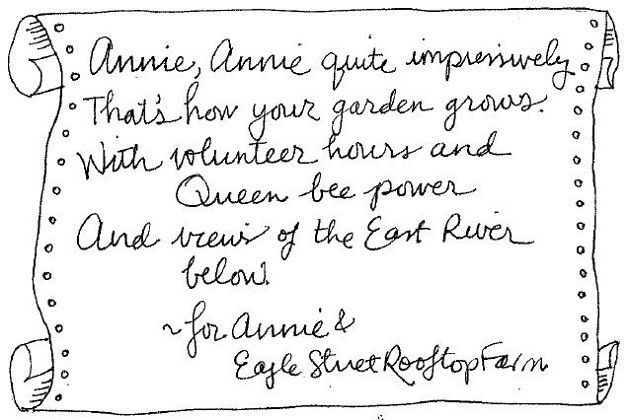 Annie, Annie quite impressively
That's how your garden grows.
With volunteer hours and
Queen bee power
And views of the East River
below.
~for Annie &
Eagle Street Rooftop Farm